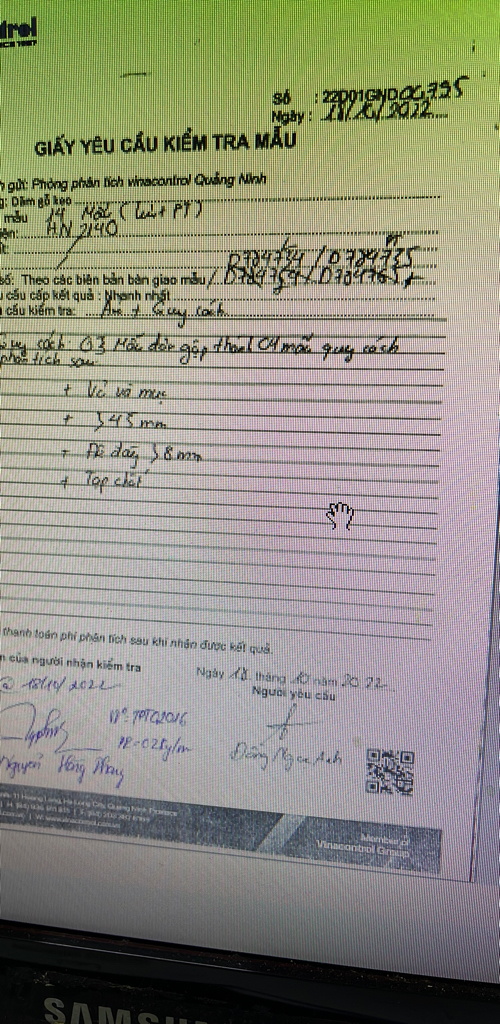 trol
Số : 22D01GND06795
Ngày : 18/10/2022
GIẤY YÊU CẦU KIỂM TRA MẪU
h gửi: Phòng phân tích vinacontrol Quảng Ninh
g: Dăm gỗ keo
mẫu 14 Mẫu (Lưu + PT)
iện: HN 2140
D784734 / D784735
số: Theo các biên bản bàn giao mẫu / D784754 / D784765
u cầu cấp kết quả : Nhanh nhất
cầu kiểm tra: Ẩm + Quy cách
Quy cách: 03 Mẫu đơn gộp thành 01 mẫu quy cách
phân tích sau
+ Vỏ và mục
+ >45 mm
+ Độ dày >8 mm
+ Tạp chất
thanh toán phí phân tích sau khi nhận được kết quả.
n của người nhận kiểm tra
Ngày 18 tháng 10 năm 2022
@ 18/10/2022
Người yêu cầu
Nguyễn Hồng Phong
Đặng Ngọc Anh
Member of
Vinacontrol Group
SAMSUNG